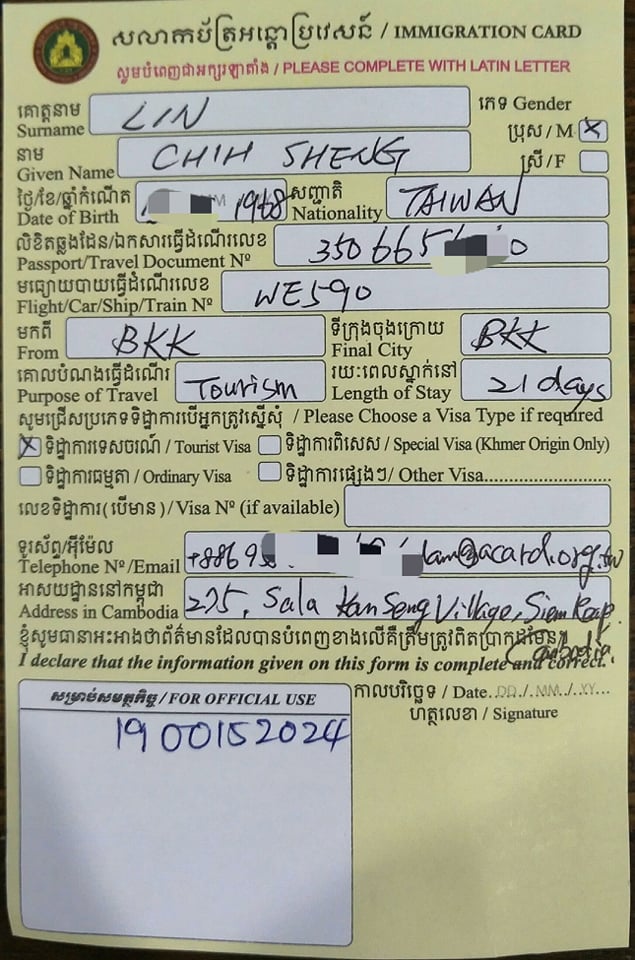 សលាកប័ត្រអន្តោប្រវេសន៍ / IMMIGRATION CARD
សូមបំពេញជាអក្សរឡាតាំង / PLEASE COMPLETE WITH LATIN LETTER
គោត្តនាម LIN ភេទ Gender
Surname ប្រុស / M X
នាម CHIH SHENG ស្រី / F
Given Name
ថ្ងៃ/ខែ/ឆ្នាំកំណើត 1968 សញ្ជាតិ TAIWAN
Date of Birth Nationality
លិខិតឆ្លងដែន/ឯកសារធ្វើដំណើរលេខ 350665
Passport/Travel Document Nº
មធ្យោបាយធ្វើដំណើរលេខ WE590
Flight/Car/Ship/Train Nº
មកពី BKK ទីក្រុងចុងក្រោយ BKK
From Final City
គោលបំណងធ្វើដំណើរ Tourism រយៈពេលស្នាក់នៅ 21 days
Purpose of Travel Length of Stay
សូមជ្រើសប្រភេទទិដ្ឋាការបើអ្នកត្រូវស្នើសុំ / Please Choose a Visa Type if required
X ទិដ្ឋាការទេសចរណ៍ / Tourist Visa ទិដ្ឋាការពិសេស / Special Visa (Khmer Origin Only)
ទិដ្ឋាការធម្មតា / Ordinary Visa ទិដ្ឋាការផ្សេងៗ/ Other Visa
លេខទិដ្ឋាការ (បើមាន) / Visa Nº (if available)
ទូរស័ព្ទ/អ៊ីម៉ែល +8869 lam@acard.org.tw
Telephone Nº /Email
អាសយដ្ឋាននៅកម្ពុជា 275, Sala Kan Seng Village, Siem Reap
Address in Cambodia
ខ្ញុំសូមធានាអះអាងថាព័ត៌មានដែលបានបំពេញខាងលើគឺត្រឹមត្រូវពិតប្រាកដមែន។
I declare that the information given on this form is complete and correct.
សម្រាប់សមត្ថកិច្ច / FOR OFFICIAL USE កាលបរិច្ឆេទ / Date..DD../..MM../..YY...
1900152024 ហត្ថលេខា / Signature